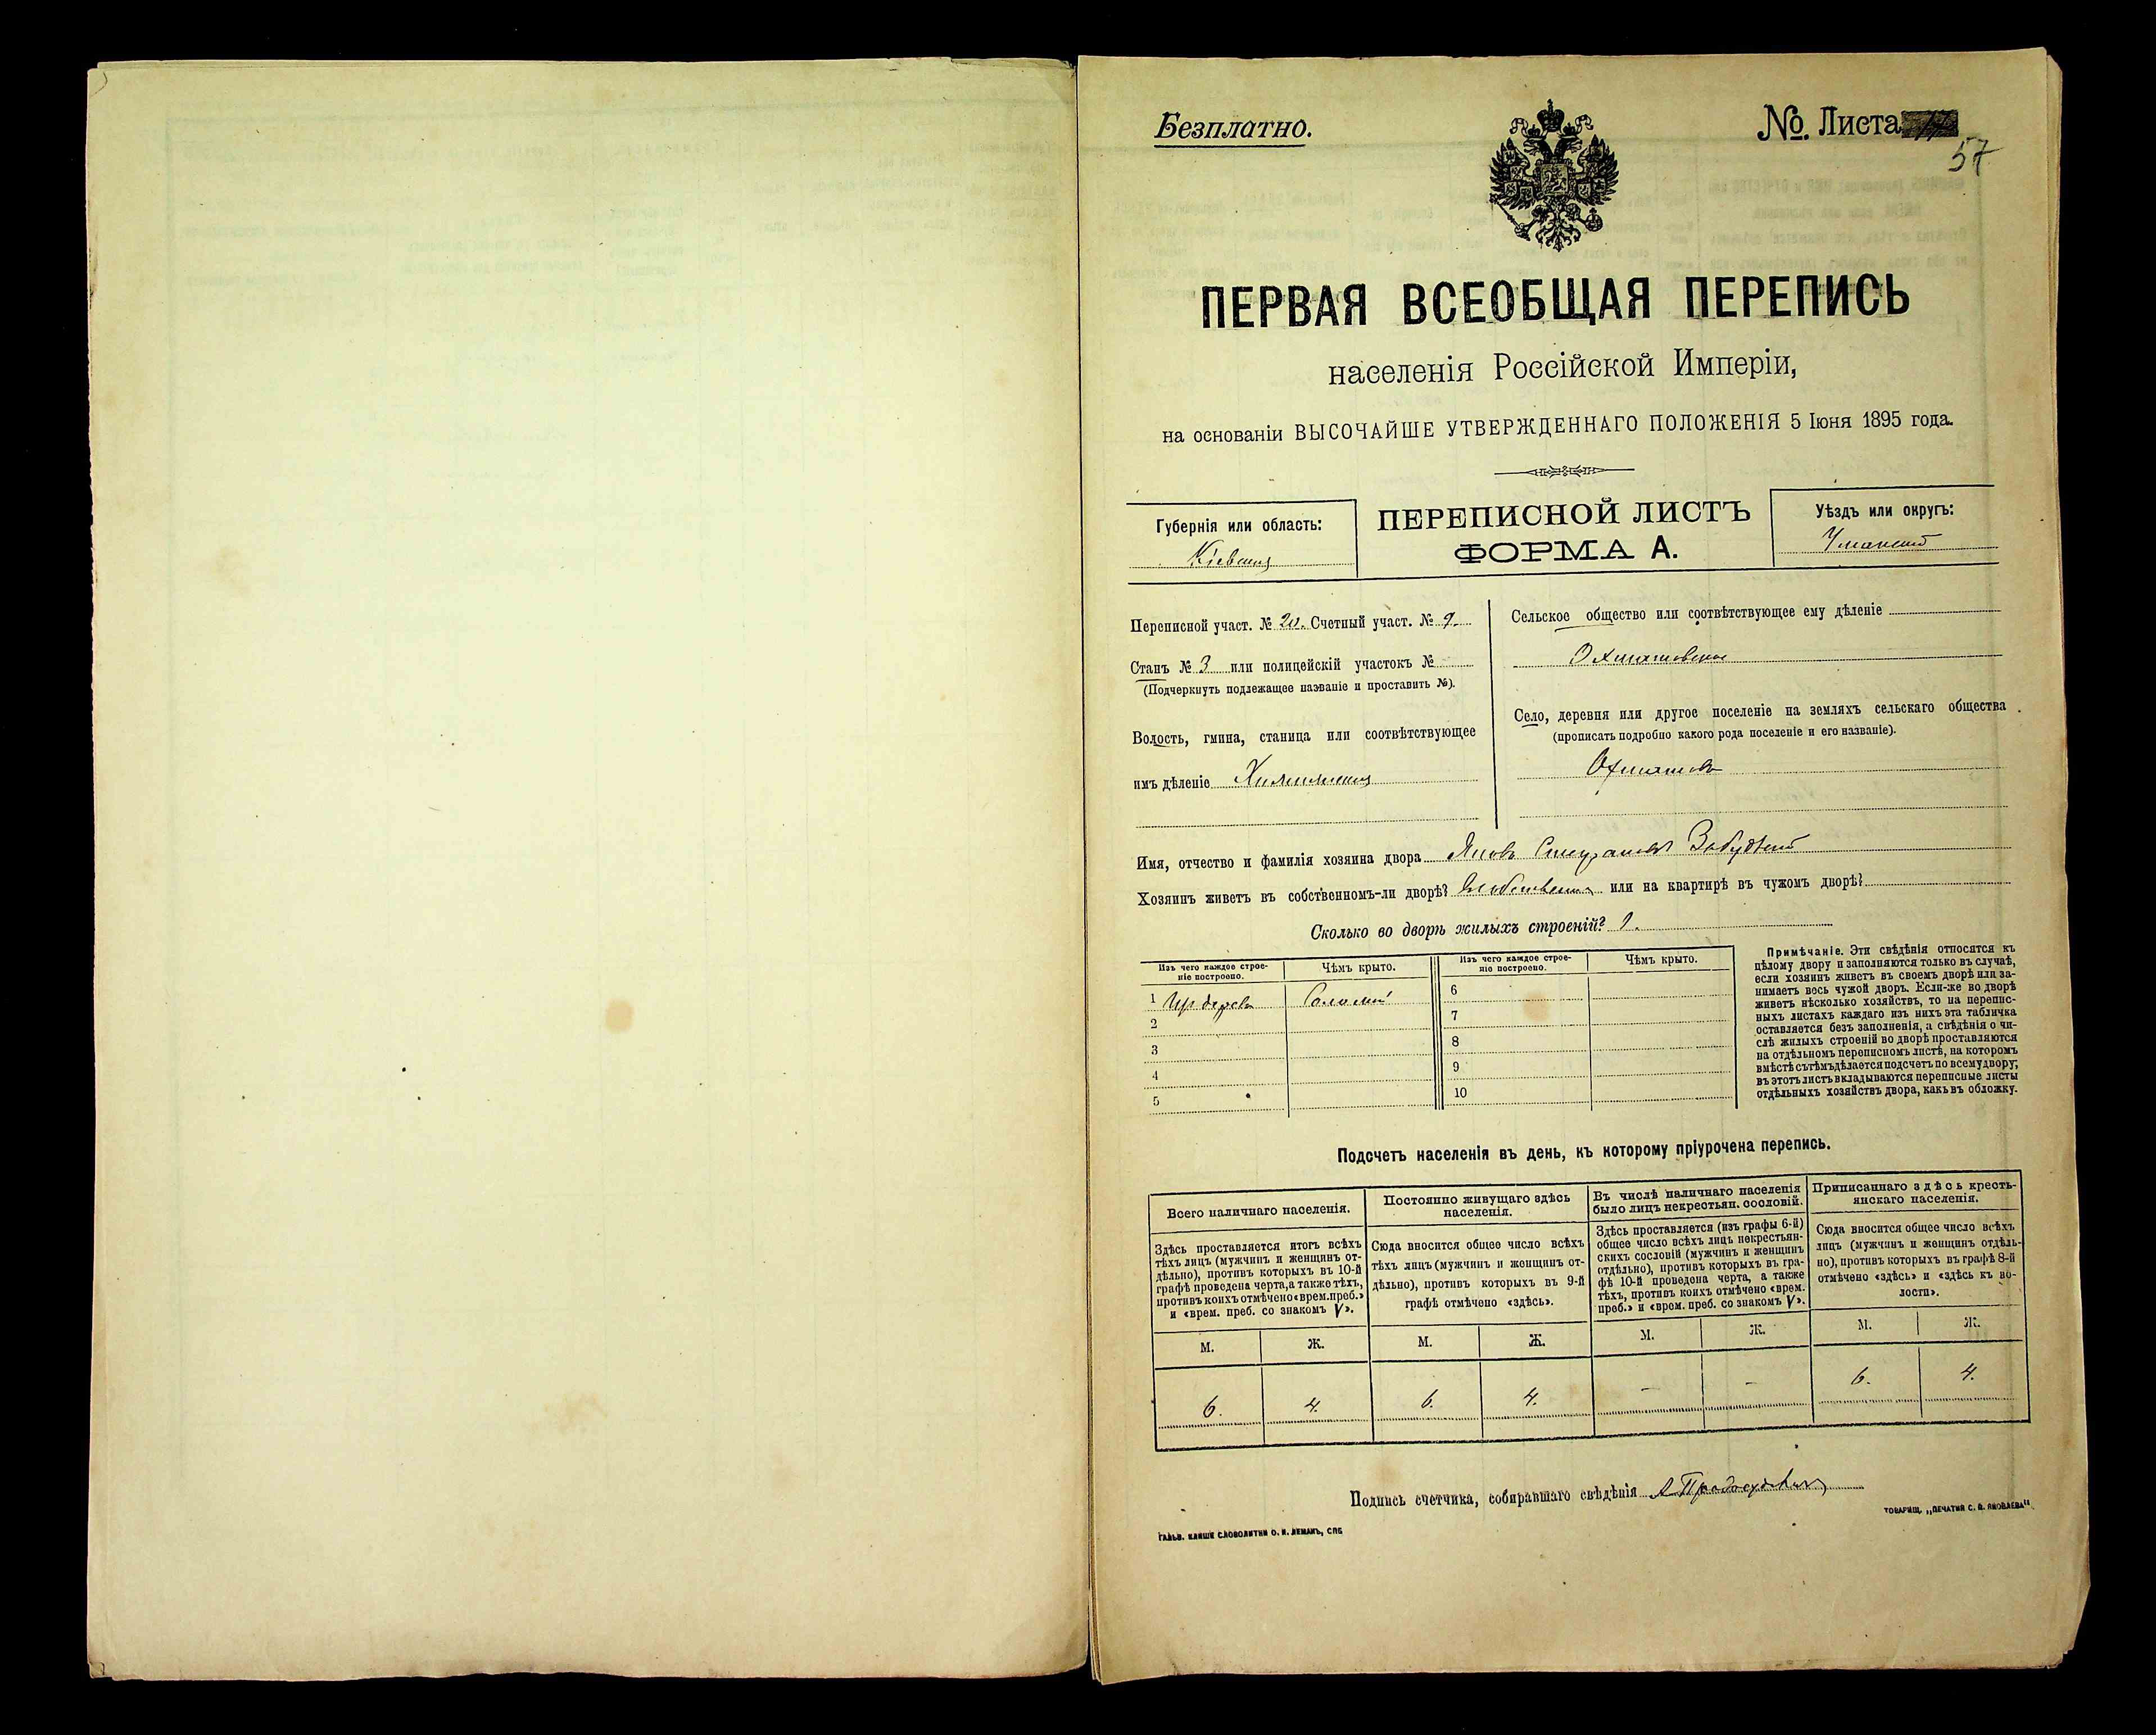 Безплатно.
№. Листа
57
ПЕРВАЯ ВСЕОБЩАЯ ПЕРЕПИСЬ
населенія Россійской Имперіи,
на основаніи ВЫСОЧАЙШЕ УТВЕРЖДЕННАГО ПОЛОЖЕНІЯ 5 Іюня 1895 года.
Губернія или область:
Кіевская
ПЕРЕПИСНОЙ ЛИСТЪ
ФОРМА А.
Уѣздъ или округъ:
Уманскій
Переписной участ. № 20. Счетный участ. № 9.
Станъ № 3 или полицейскій участокъ №
(Подчеркнуть подлежащее названіе и проставить №).
Волость, гмина, станица или соотвѣтствующее
имъ дѣленіе
Сельское общество или соотвѣтствующее ему дѣленіе
Охматовское
Село, деревня или другое поселеніе на земляхъ сельскаго общества
(прописать подробно какого рода поселеніе и его названіе).
Охматовъ
Имя, отчество и фамилія хозяина двора Яковъ
Хозяинъ живетъ въ собственномъ-ли дворѣ? или на квартирѣ въ чужомъ дворѣ?
Сколько во дворѣ жилыхъ строеній? 1.
Изъ чего каждое строе-
ніе построено.
Чѣмъ крыто.
1 Изъ дерева Соломой
2
3
4
5
Изъ чего каждое строе-
ніе построено.
Чѣмъ крыто.
6
7
8
9
10
Примѣчаніе. Эти свѣдѣнія относятся къ
цѣлому двору и заполняются только въ случаѣ,
если хозяинъ живетъ въ своемъ дворѣ или за-
нимаетъ весь чужой дворъ. Если-же во дворѣ
живетъ нѣсколько хозяйствъ, то на перепис-
ныхъ листахъ каждаго изъ нихъ эта табличка
оставляется безъ заполненія, а свѣдѣнія о чи-
слѣ жилыхъ строеній во дворѣ проставляются
на отдѣльномъ переписномъ листѣ, на которомъ
вмѣстѣ съ тѣмъ дѣлается подсчетъ по всему двору;
въ этотъ листъ вкладываются переписные листы
отдѣльныхъ хозяйствъ двора, какъ въ обложку.
Подсчетъ населенія въ день, къ которому пріурочена перепись.
Всего наличнаго населенія.
Здѣсь проставляется итогъ всѣхъ
тѣхъ лицъ (мужчинъ и женщинъ от-
дѣльно), противъ которыхъ въ 10-й
графѣ проведена черта, а также тѣхъ,
противъ коихъ отмѣчено «врем. преб.»
и «врем. преб. со знакомъ V».
М. Ж.
6. 4.
Постоянно живущаго здѣсь
населенія.
Сюда вносится общее число всѣхъ
тѣхъ лицъ (мужчинъ и женщинъ от-
дѣльно), противъ которыхъ въ 9-й
графѣ отмѣчено «здѣсь».
М. Ж.
6. 4.
Въ числѣ наличнаго населенія
было лицъ некрестьян. сословій.
Здѣсь проставляется (изъ графы 6-й)
общее число всѣхъ лицъ некрестьян-
скихъ сословій (мужчинъ и женщинъ
отдѣльно), противъ которыхъ въ гра-
фѣ 10-й проведена черта, а также
тѣхъ, противъ коихъ отмѣчено «врем.
преб.» и «врем. преб. со знакомъ V».
М. Ж.
– –
Приписаннаго здѣсь кресть-
янскаго населенія.
Сюда вносится общее число всѣхъ
лицъ (мужчинъ и женщинъ отдѣль-
но), противъ которыхъ въ графѣ 8-й
отмѣчено «здѣсь» и «здѣсь къ во-
лости».
М. Ж.
6. 4.
Подпись счетчика, собиравшаго свѣдѣнія
ГАЛЬВ. КЛИШЕ СЛОВОЛИТНИ О. И. ЛЕМАНЪ, СПБ
ТОВАРИЩ. „ПЕЧАТНЯ С. П. ЯКОВЛЕВА"